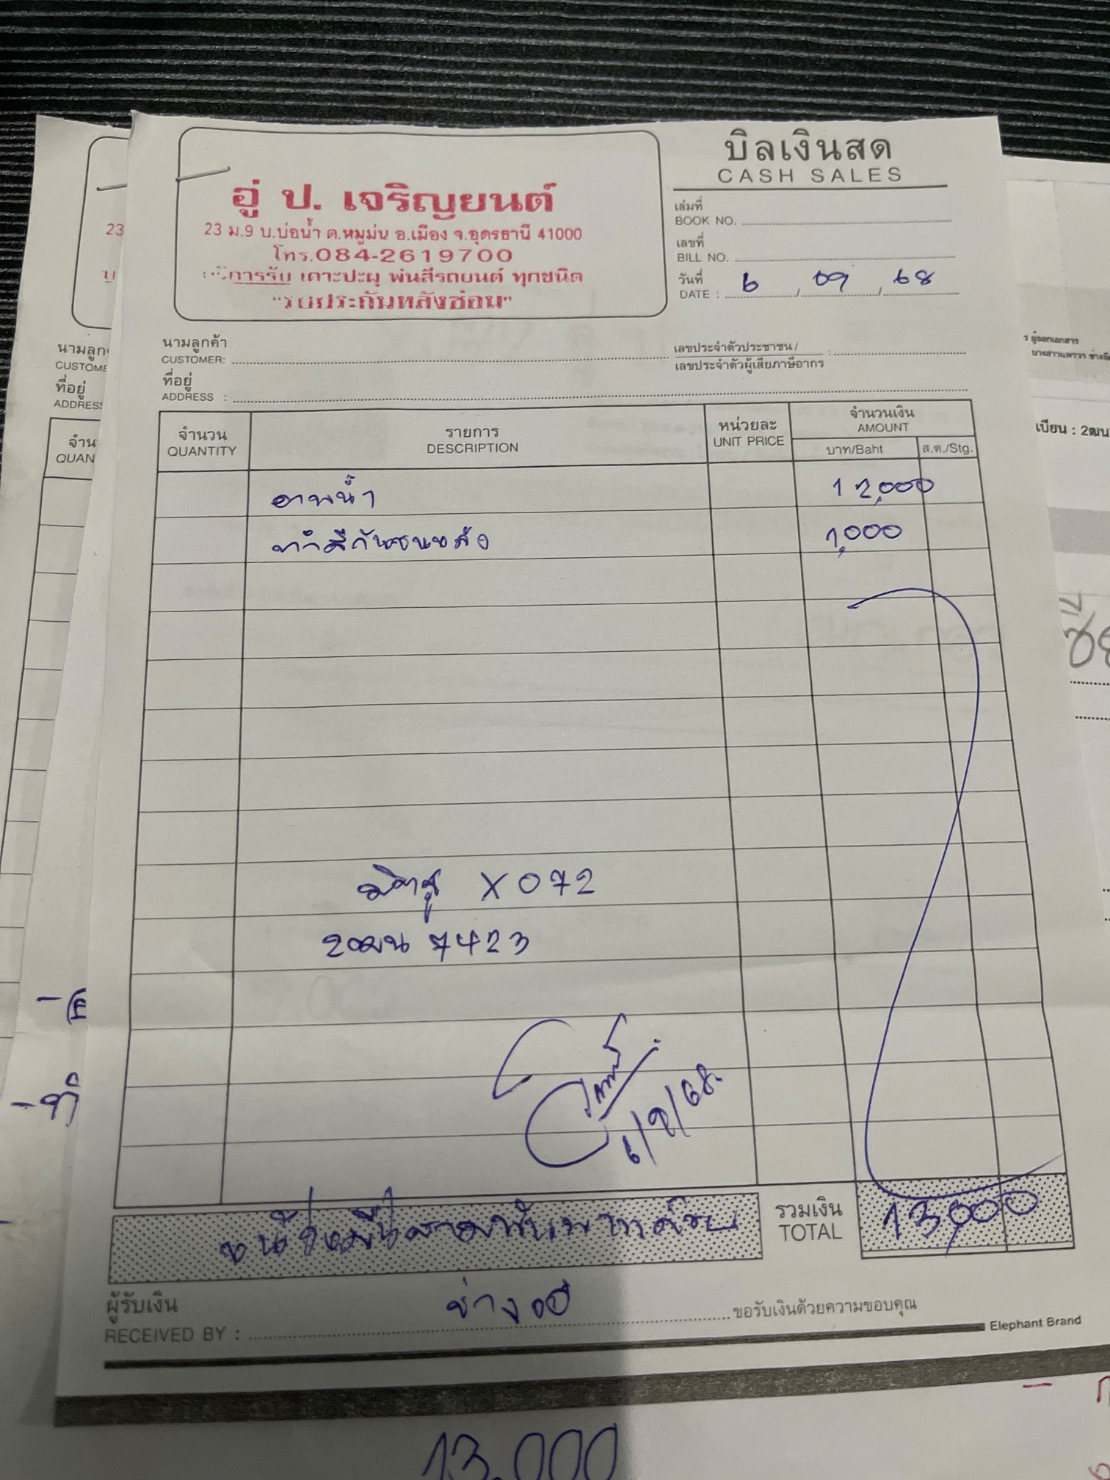 บิลเงินสด
CASH SALES
อู่ ป. เจริญยนต์
23 ม.9 บ.บ่อน้ำ ต.หมูม่น อ.เมือง จ.อุดรธานี 41000
โทร.084-2619700
บริการรับ เคาะปะผุ พ่นสีรถยนต์ ทุกชนิด
"รับประกันหลังซ่อม"
เล่มที่
BOOK NO.
เลขที่
BILL NO.
วันที่
DATE : 6 / 09 / 68
นามลูกค้า
CUSTOMER:
เลขประจำตัวประชาชน /
เลขประจำตัวผู้เสียภาษีอากร :
ที่อยู่
ADDRESS :
จำนวน
QUANTITY
รายการ
DESCRIPTION
หน่วยละ
UNIT PRICE
จำนวนเงิน
AMOUNT
บาท/Baht ส.ต./Stg.
12,000
ทำสีกันชนหลัง 1,000
X072
2ฒน 7423
6/9/68.
รวมเงิน
TOTAL
13,000
ผู้รับเงิน
RECEIVED BY :
ขอรับเงินด้วยความขอบคุณ
Elephant Brand
13.000
23
นามลูก
CUSTOME
ที่อยู่
ADDRESS
จำน
QUAN
ผู้ออกเอกสาร
เบียน : 2ฒน